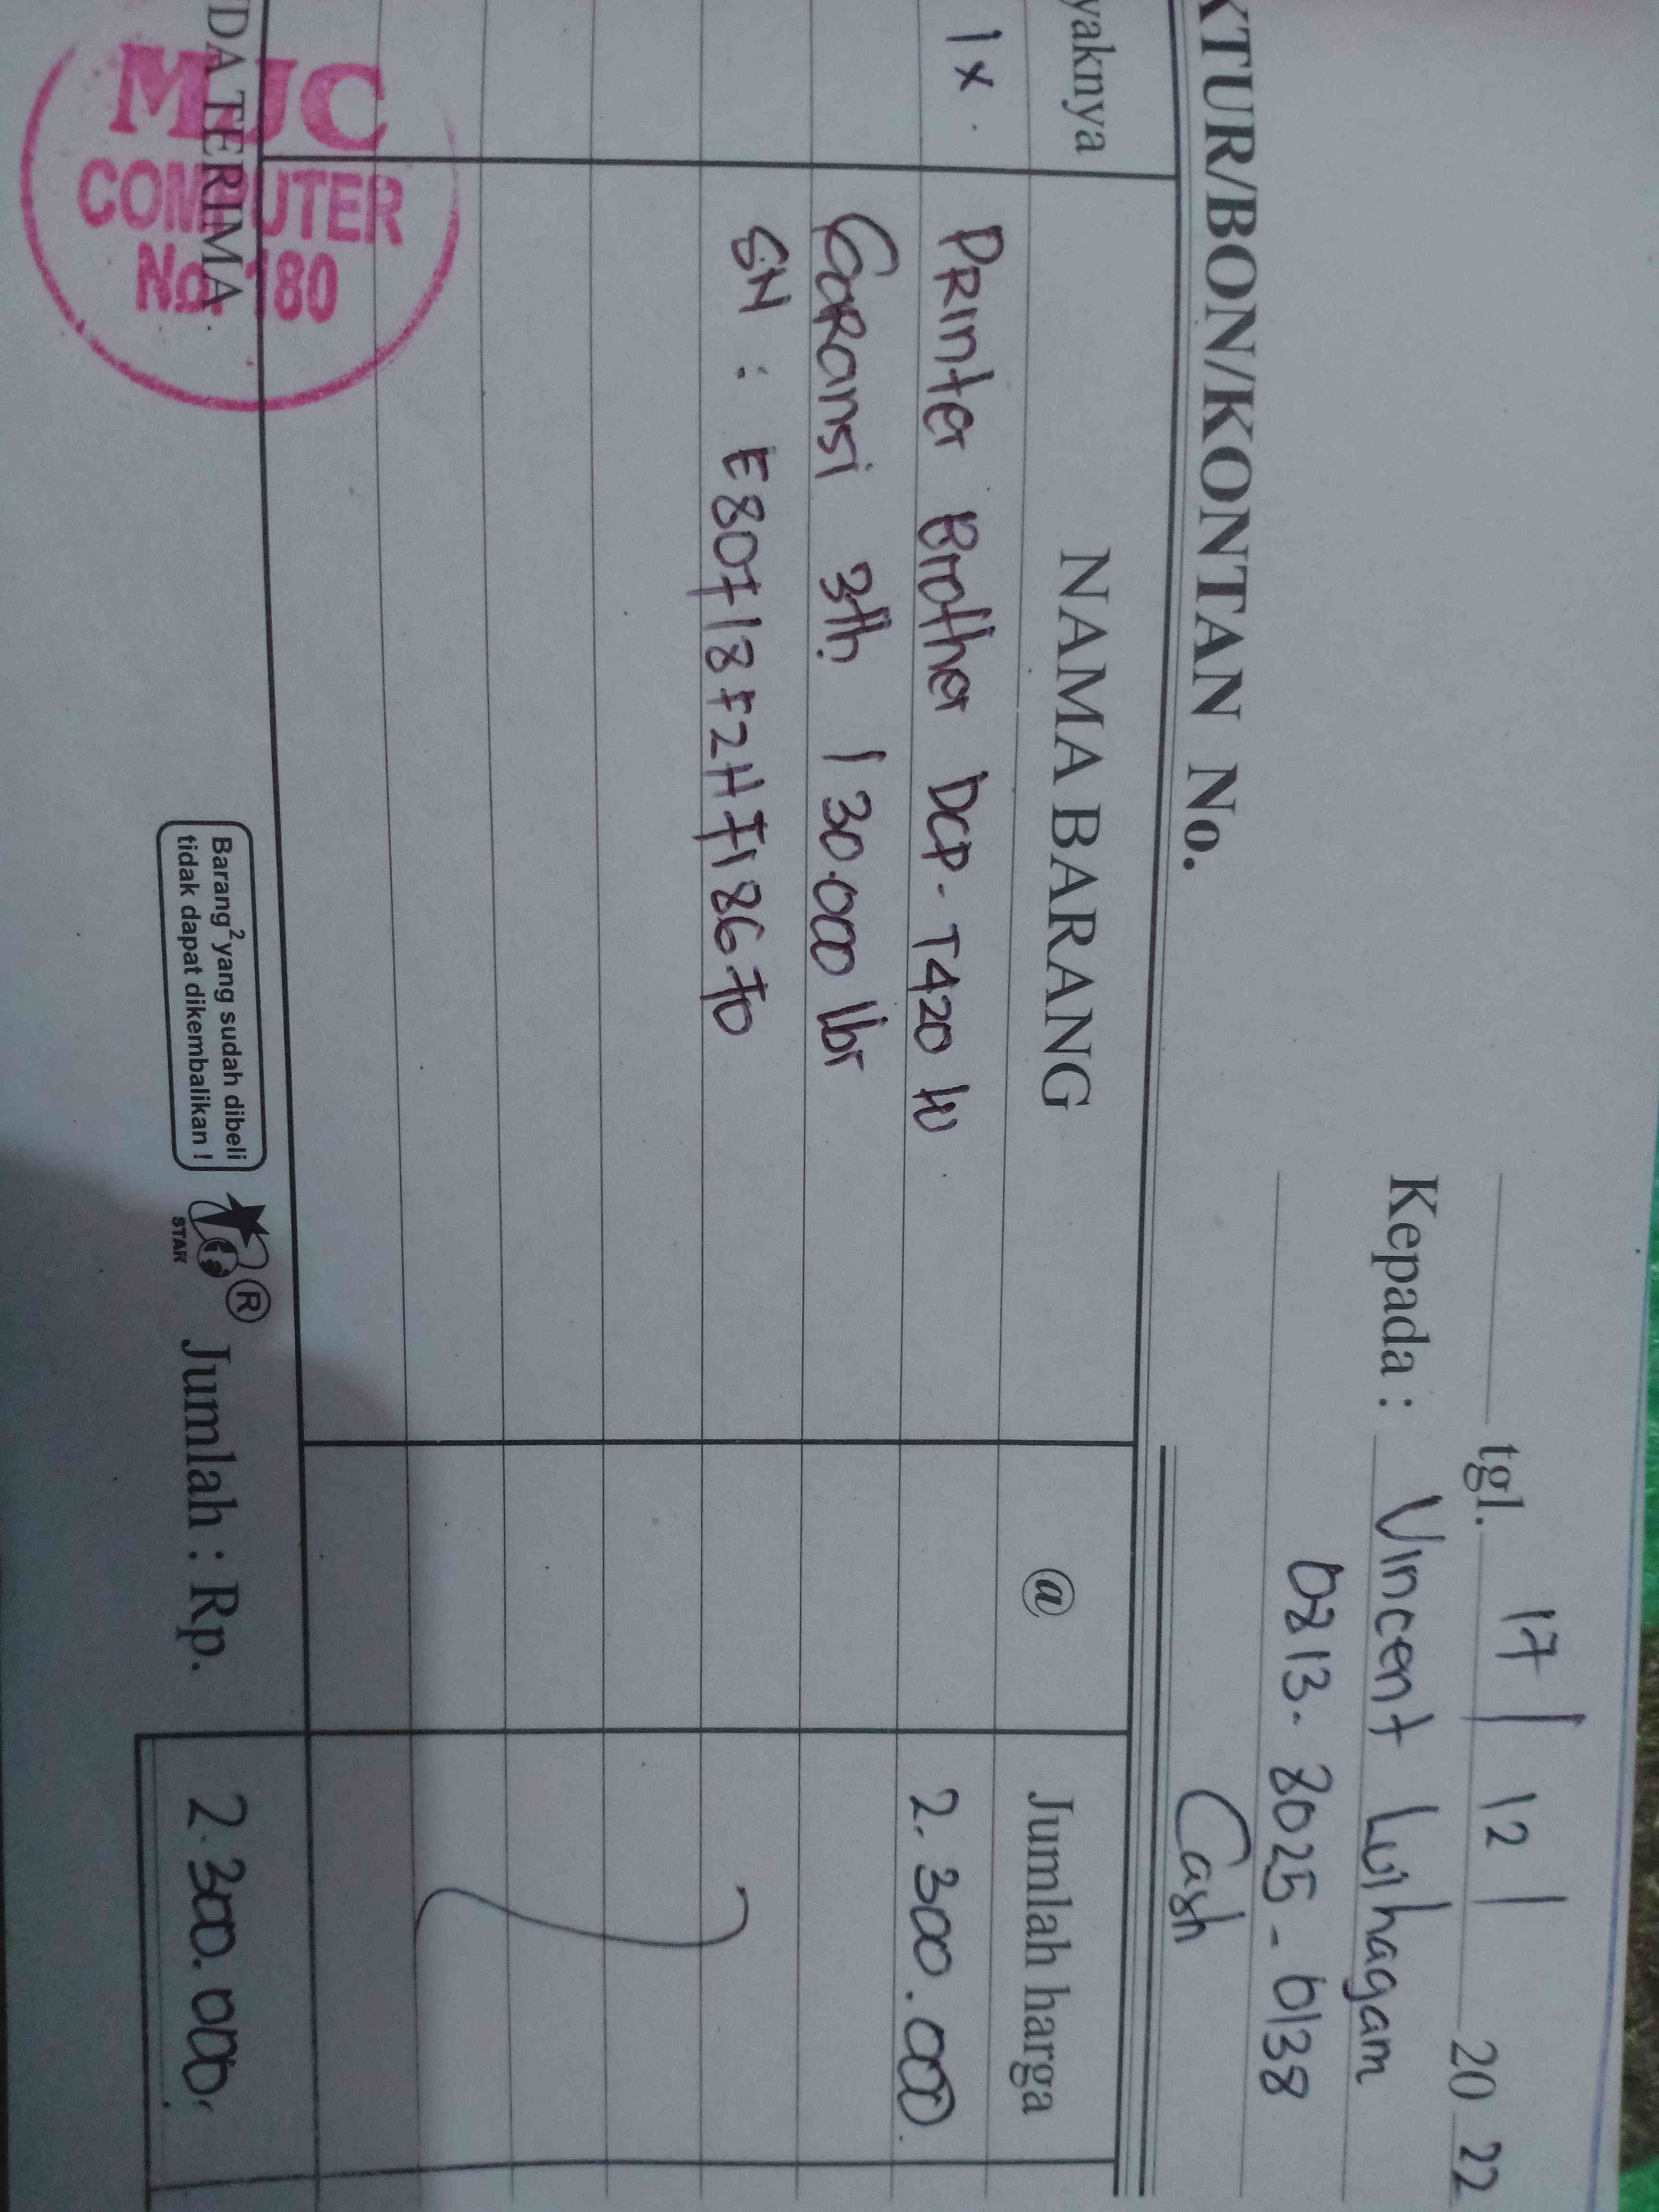 tgl. 17 / 12 / 20 22
Kepada : Vincent Luihagam
0213-8025-0138
KTUR/BON/KONTAN No.
Cash
yaknya NAMA BARANG @ Jumlah harga
1 x. Printer Brother DCP-T420 W 2.300.000
Garansi 3th / 30.000 lbr
SN : E80718F2H718670
DA TERIMA
MJC
COMPUTER
No. 180
Barang² yang sudah dibeli
tidak dapat dikembalikan !
STAR
®
Jumlah : Rp. 2.300.000